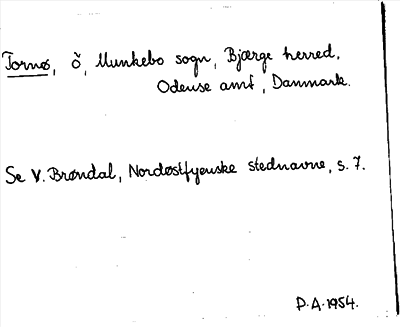 Tornø, ö, Munkebo sogn, Bjærge herred,
Odense amt, Danmark.
Se V. Brøndal, Nordøstfyenske stednavne, s. 7.
P.A. 1954.